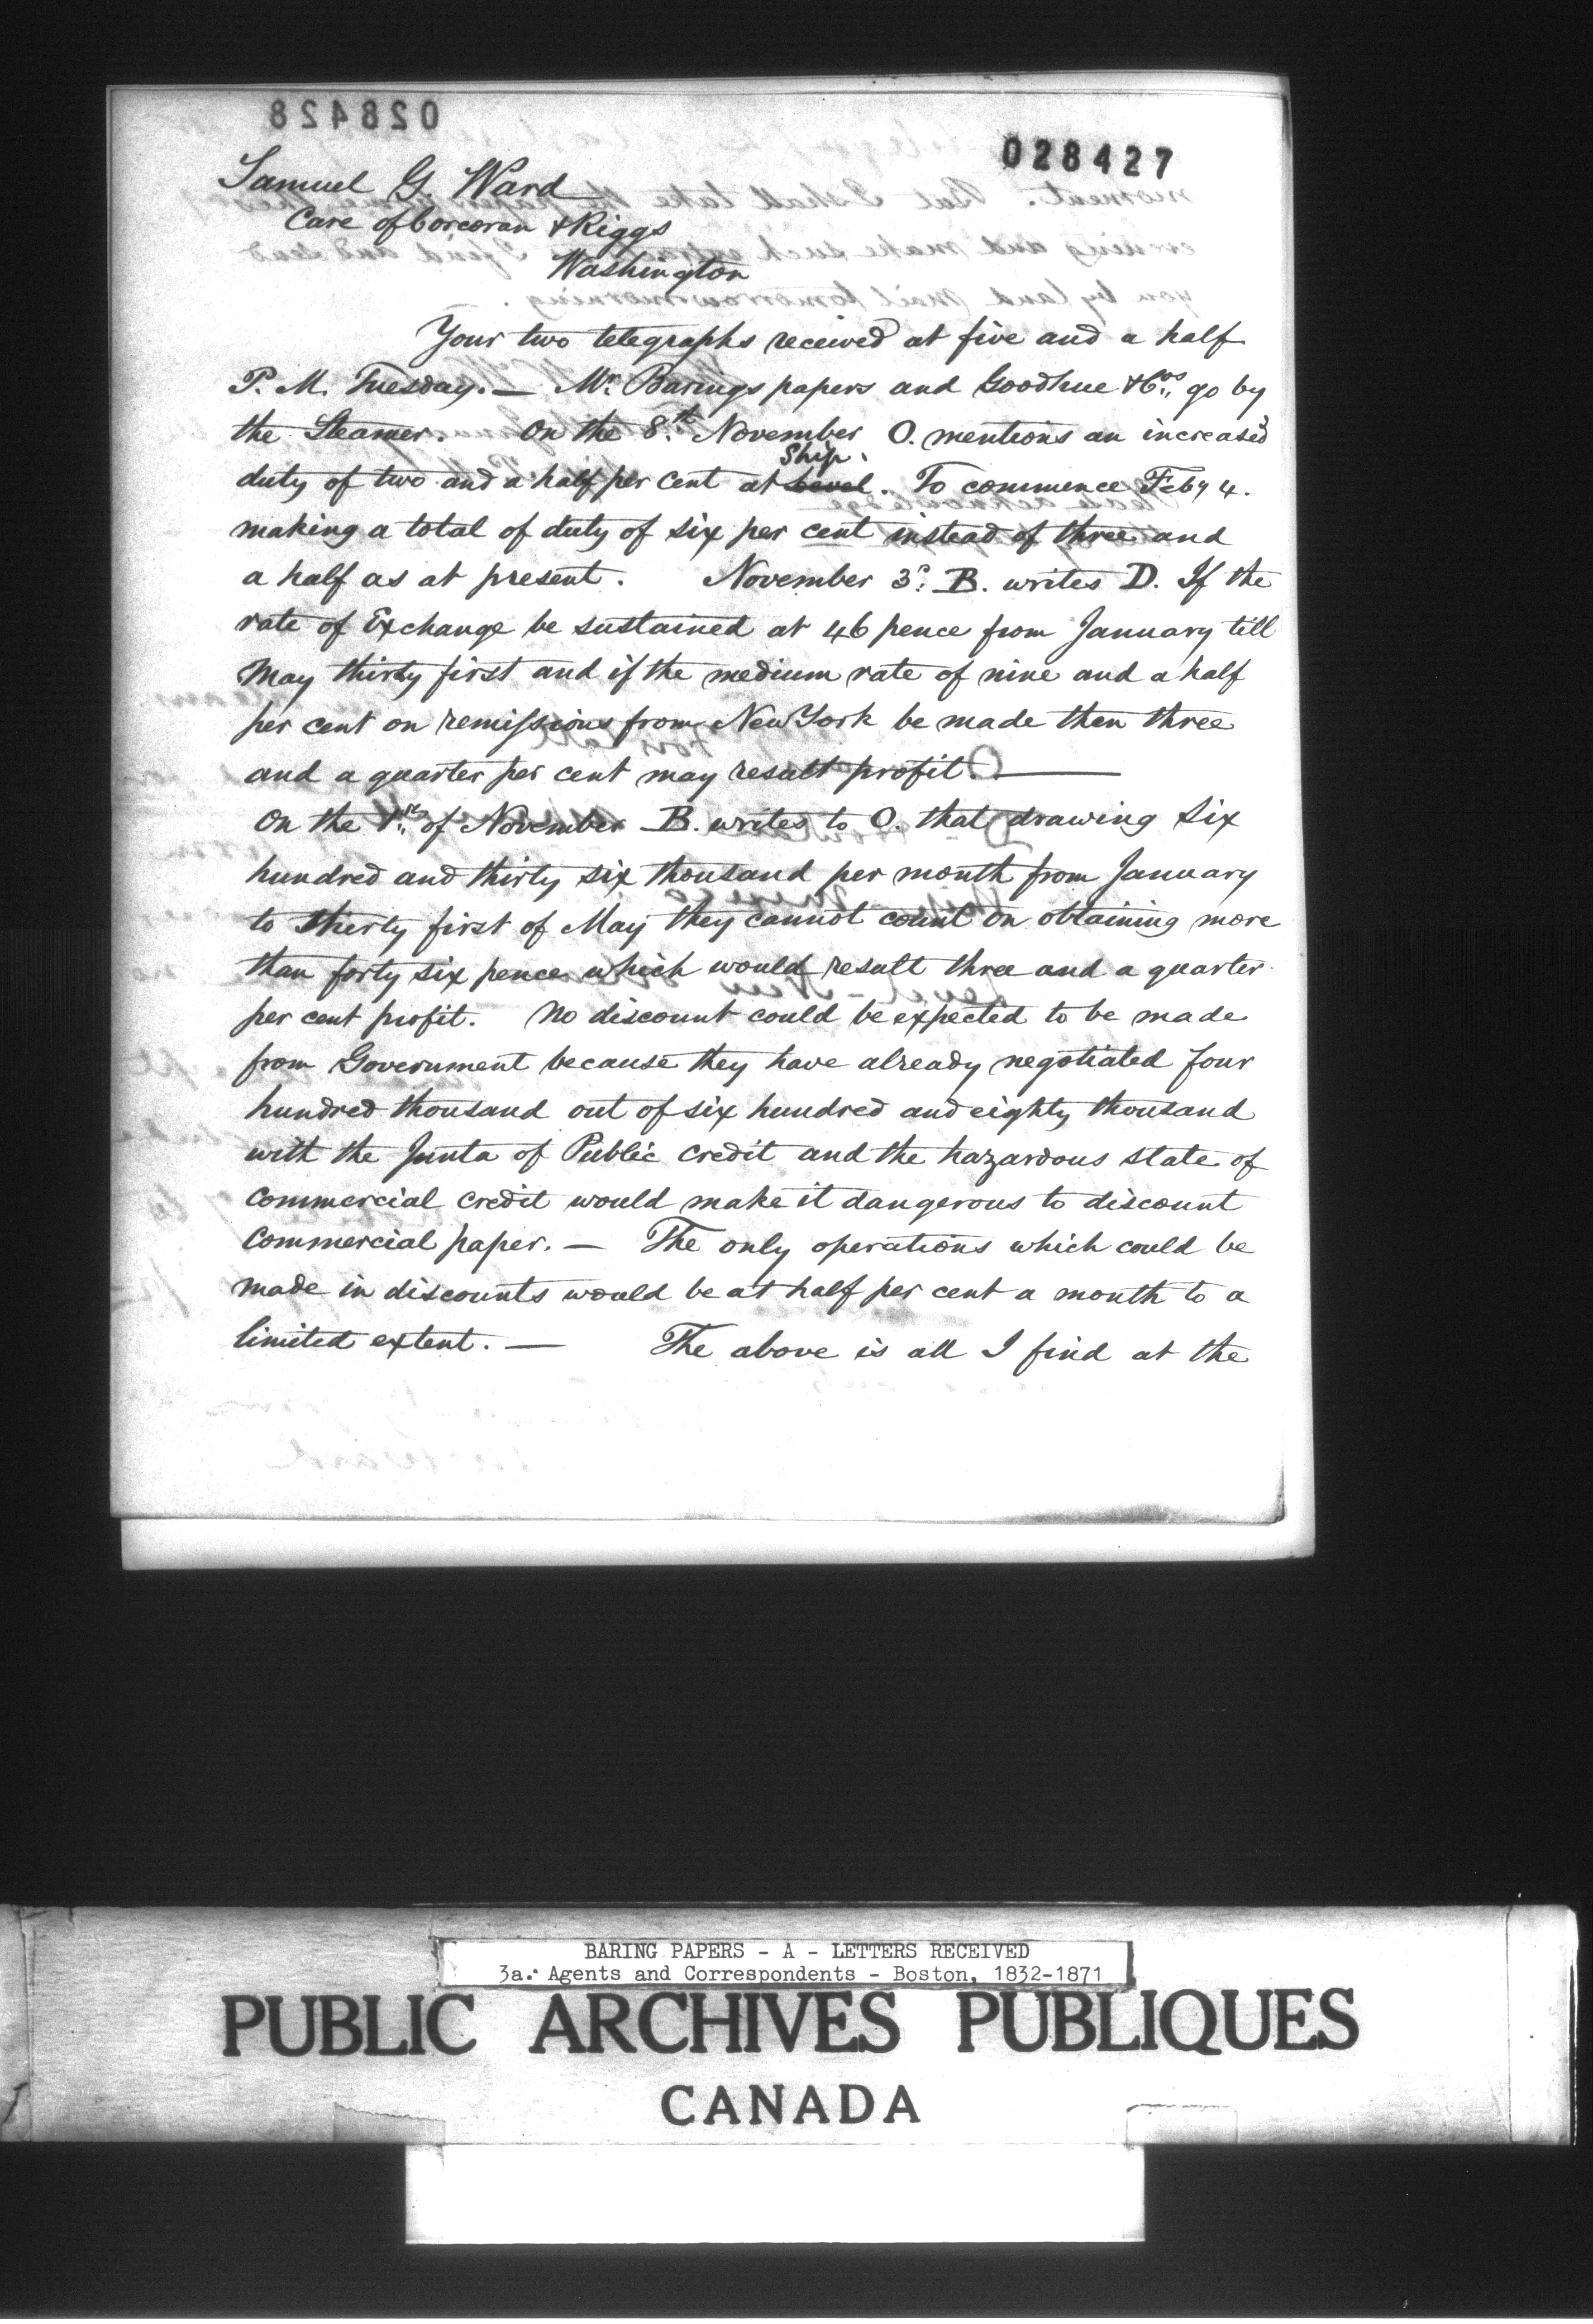 028428
028427
Samuel G. Ward
Care of Corcoran & Riggs
Washington
Your two telegraphs received at five and a half
P. M. Tuesday. — Mr. Barings papers and Goodhue & Cos. go by
the Steamer. On the 8th November O. mentions an increased
Ship.
duty of two and a half per cent at Level. To commence Feby 4.
making a total of duty of six per cent instead of three and
a half as at present. November 3d. B. writes D. If the
rate of Exchange be sustained at 46 pence from January till
May thirty first and if the medium rate of nine and a half
per cent on remissions from New York be made then three
and a quarter per cent may result profit. —
On the 1st. of November B. writes to O. that drawing six
hundred and thirty six thousand per month from January
to thirty first of May they cannot count on obtaining more
than forty six pence which would result three and a quarter
per cent profit. No discount could be expected to be made
from Government because they have already negotiated four
hundred thousand out of six hundred and eighty thousand
with the Junta of Public Credit and the hazardous state of
Commercial Credit would make it dangerous to discount
Commercial paper. — The only operations which could be
made in discounts would be at half per cent a month to a
limited extent. — The above is all I find at the
BARING PAPERS - A - LETTERS RECEIVED
3a. Agents and Correspondents - Boston, 1832-1871
PUBLIC ARCHIVES PUBLIQUES
CANADA